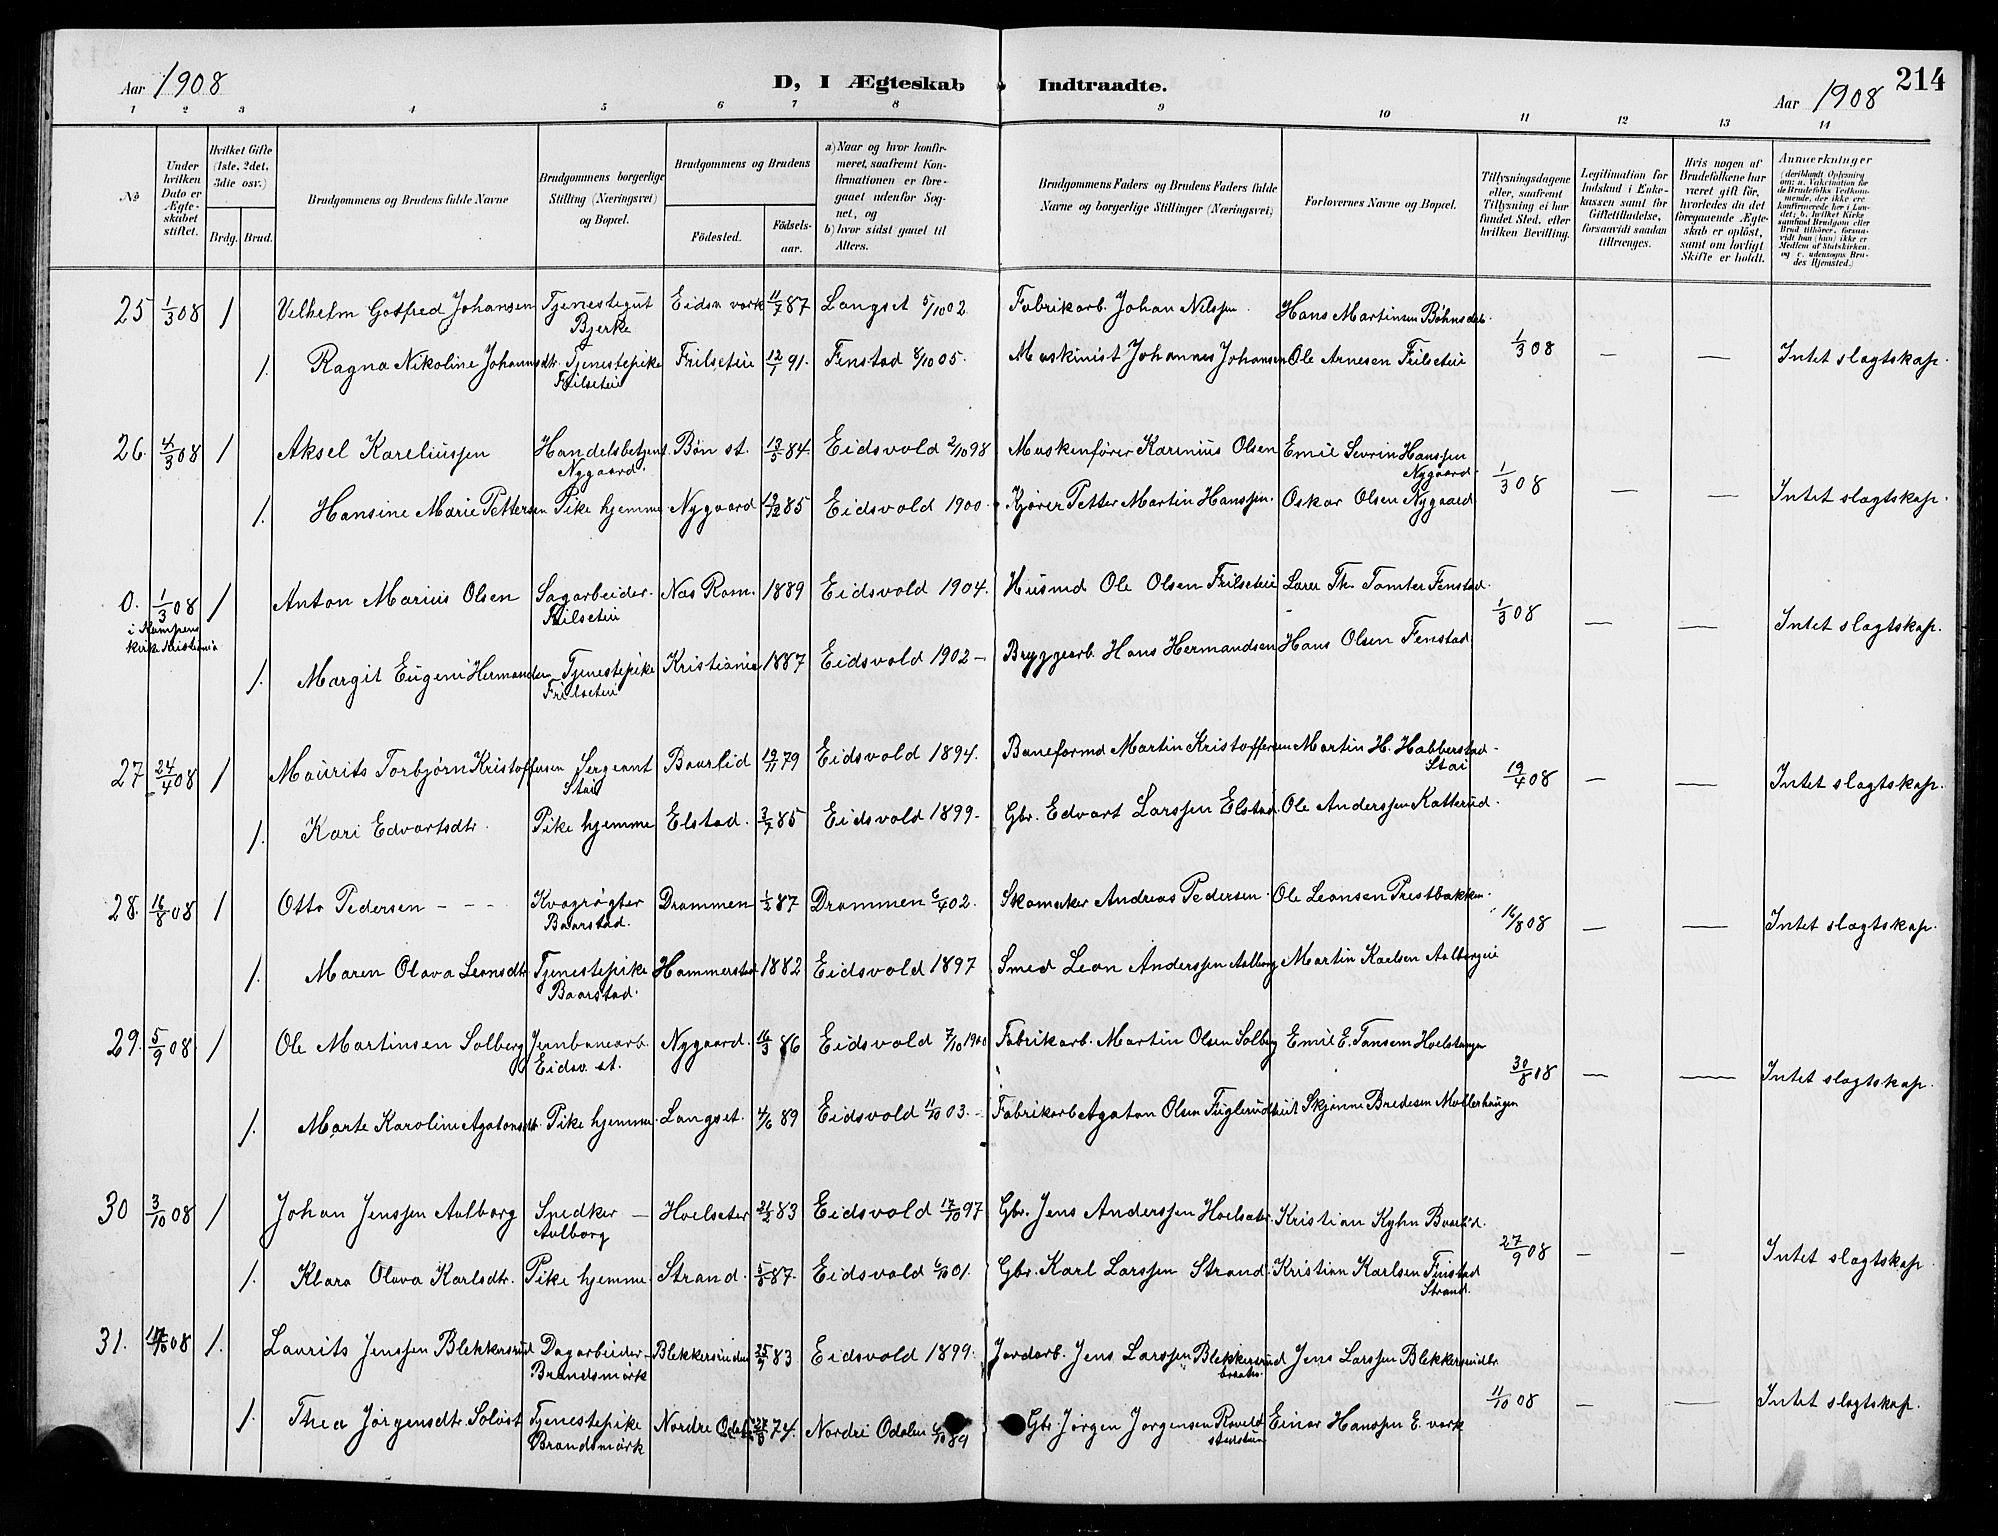 Aar 1908
D, I Ægteskab Indtraadte.
Aar 1908
214
1 2 3 4 5 6 7 8 9 10 11 12 13 14
No
Under hvilken Dato er Ægteskabet stiftet.
Hvilket Gifte (1ste, 2det, 3die osv.)
Brdg. Brud.
Brudgommens og Brudens fulde Navne
Brudgommens borgerlige Stilling (Næringsvei) og Bopæl.
Brudgommens og Brudens
Fødested.
Fødsels-aar.
a) Naar og hvor konfirmeret, saafremt Konfirmationen er foregaaet udenfor Sognet, og
b) hvor sidst gaaet til Alters.
Brudgommens Faders og Brudens Faders fulde Navne og borgerlige Stillinger (Næringsvei)
Forlovernes Navne og Bopæl.
Tillysningsdagene eller, saafremt Tillysning ei har fundet Sted, efter hvilken Bevilling.
Legitimation for Indskud i Enkekassen samt for Giftetilladelse, forsaavidt saadan tiltrænges.
Hvis nogen af Brudefolkene har været gift før, hvorledes da det foregaaende Ægteskab er opløst, samt om lovligt Skifte er holdt.
Anmærkninger (deriblandt Oplysning om: a. Vakcination for de Brudefolks Vedkommende, der ikke ere konfirmerede her i Landet; b. hvilket Kirkesamfund Brudgom eller Brud tilhører, forsaavidt han (hun) ikke er Medlem af Statskirken, og c. udensogns Brudes Hjemsted.)
25 1/3 08 1 Velhelm Gotfred Johansen Tjenestegut Bjerke Eidsv. verk 11/7 87 Langset 5/10 02. Fabrikarb. Johan Nilssen. Hans Martinsen
1. Ragna Nikoline Johannsdtr. Tjenestepike Frilseteie Frilseteie 12/1 91. Fenstad 8/10 05. Maskinist Johannes Johansen Ole Arnesen Frilseteie 1/3 08 — — Intet slagtskap.
26. 4/3 08 1 Aksel Kareliussen Handelsbetjent Nygaard. Bøn st. 13/5 84. Eidsvold 2/10 98 Maskenfører Karenius Olsen Emil Sevrin Hanssen Nygaard.
1. Hansine Marie Pettersen Pike hjemme Nygaard 19/12 85 Eidsvold 1900. Kjører Petter Martin Hanssen. Oskar Olsen Nygaard 1/3 08 — — Intet slagtskap.
0. 1/3 08 1 Anton Marius Olsen Sagarbeider. Frilseteie Nas Rom. 1889 Eidsvold 1904. Husmd Ole Olsen Frilseteie Larer Th. Tomter Fenstad.
i Kampens kirk. Kristiania
1. Margit Eugeni Hermansen Tjenestepike Frilseteie Kristiania 1887 Eidsvold 1902 — Bryggearb. Hans Hermandsen Hans Olsen Fenstad 1/3 08 — — Intet slagtskap.
27 24/4 08 1 Maurits Torbjørn Kristoffersen Sergeant Stai Baarlid 19/11 79 Eidsvold 1894. Baneformd Martin Kristoffersen Martin H. Habberstad Stai
1. Kari Edvartsdtr. Pike hjemme Elstad. 3/7 85 Eidsvold 1899. Gbr. Edvart Larssen Elstad Ole Anderssen Katterud. 19/4 08 — — Intet slagtskap.
28. 16/8 08 1 Otto Pedersen - - - Kvagrøgter Baarstad. Drammen 1/2 87 Drammen 6/4 02. Skomaker Andreas Pedersen. Ole Leonsen Prestbakken.
1. Maren Olava Leonsdtr. Tjenestepike Baarstad. Hammerstad 1882 Eidsvold 1897 Smed Leon Anderssen Aalborg Martin Karlsen Aalborgeie 16/8 08 — — Intet slagtskap.
29. 5/9 08 1 Ole Martinsen Solberg Jernbanearb. Eidsv. st. Nygaard. 16/3 86 Eidsvold 7/10 1900 Fabrikarb. Martin Olsen Solberg Emil E. Tansem
1. Marte Karoline Agatonsdt. Pike hjemme. Langset. 4/6 89 Eidsvold 11/10 03. — Fabrikarb Agaton Olsen Skjønne Bredesen Møllerhaugen 30/8 08 — — Intet slagtskap.
30 3/10 08 1 Johan Jenssen Aalborg Snedker Aalborg — Hoelseter 21/2 83 Eidsvold 17/10 97 Gbr. Jens Anderssen Hoelseter. Kristian Kyhn Baarlid.
1. Klara Olava Karlsdtr. Pike hjemme Strand. 5/3 87. Eidsvold 6/10 01. Gbr. Karl Larssen Strand. Kristian Karlsen Finstad Strand. 27/9 08 — — Intet slagtskap.
31. 17/10 08 1. Laurits Jenssen Blekkersrud Dagarbeider Brandsmørk Blekkersruden 25/7 83 Eidsvold 1899. Jordarb. Jens Larssen Blekkersrud braaten. Jens Larssen Blekkersrudbr.
1. Thea Jørgensdtr. Soløst Tjenestepike Brandsmørk Nordre Odalen 74. Nordre Odalen 6/10 89 Gbr. Jørgen Jørgensen Einar Hanssen E. verk 11/10 08 — — Intet slagtskap.